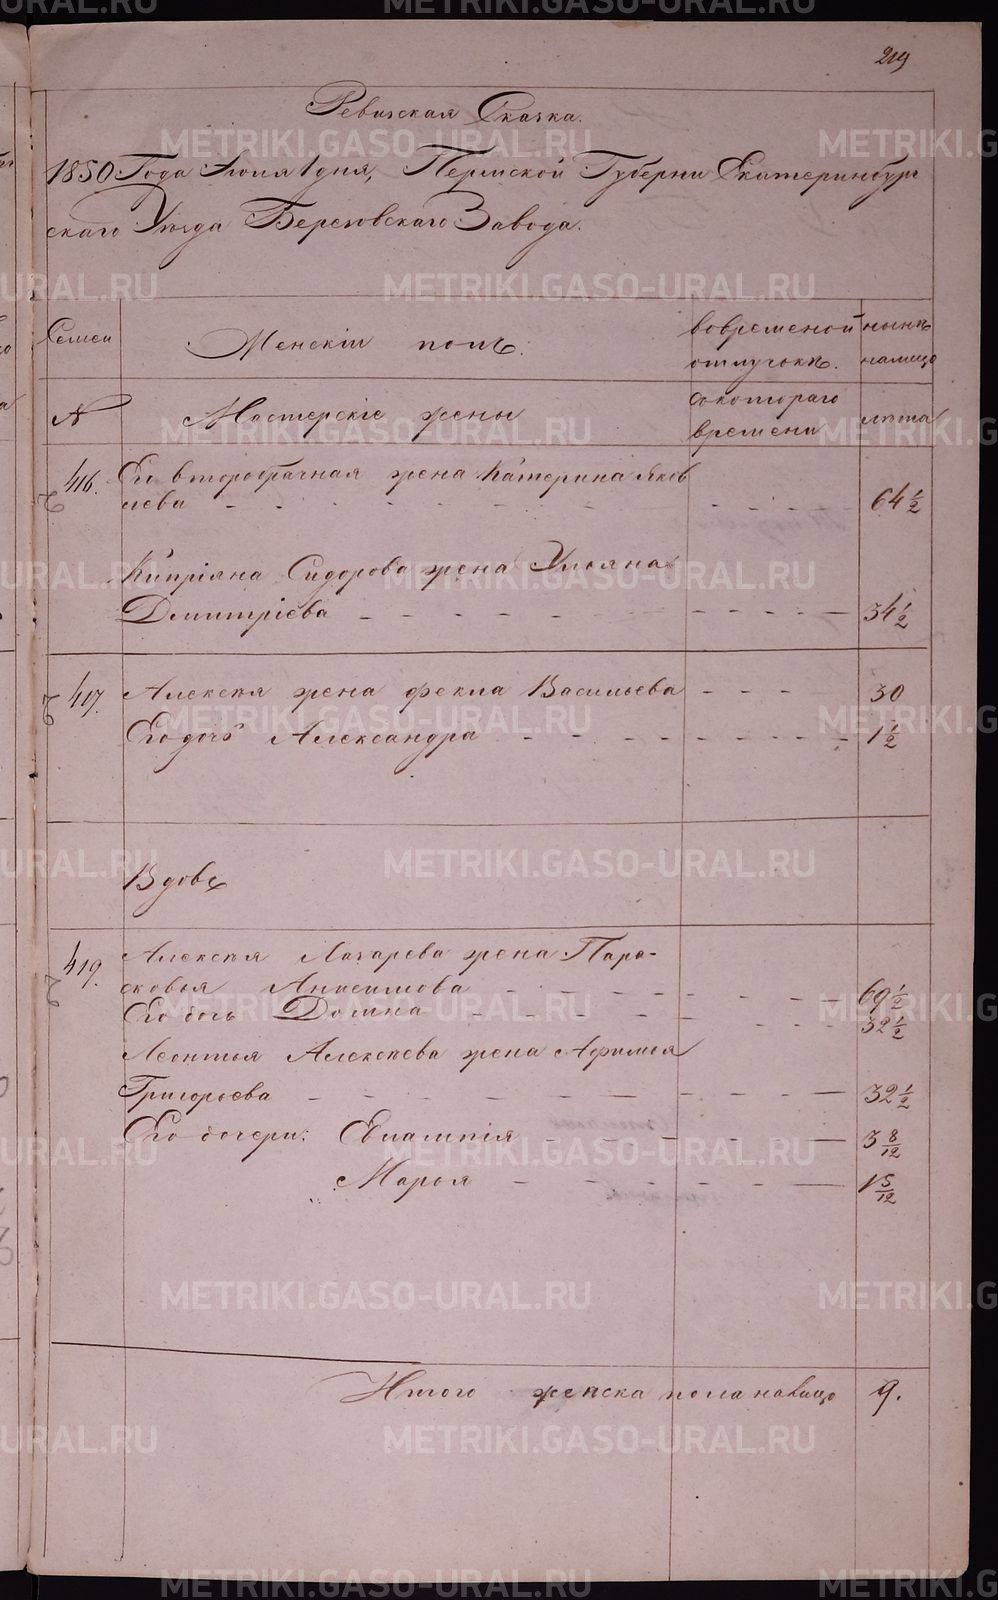 219
Ревизская Сказка.
1850 Года Июня 1 дня, Пермской Губерни Екатеринбург
скаго Уезда Березовскаго Завода.
Семеи
Женскiи полъ.
вовременой
отлучьке.
ныне
налицо
№
Мастерскiе жены
скотораго
времени
лета
416.
Его второбрачная жена Катерина Яков
лева
64 1/2
Кипрiяна Сидорова жена Ульяна
Дмитрiева
34 1/2
417.
Алексея жена Фекла Васильева
30
Его дочь Александра
1 1/2
Вдовы
419.
Алексея Лазарева жена Пара-
сковья Анисимова
69 1/2
Его дочь Домна
32 1/2
Леонтья Алексеева жена Афимья
Григорьева
32 1/2
Его дочери: Евлампiя
3 8/12
Марья
1 5/12
Итого женска пола налицо
9.
METRIKI.GASO-URAL.RU